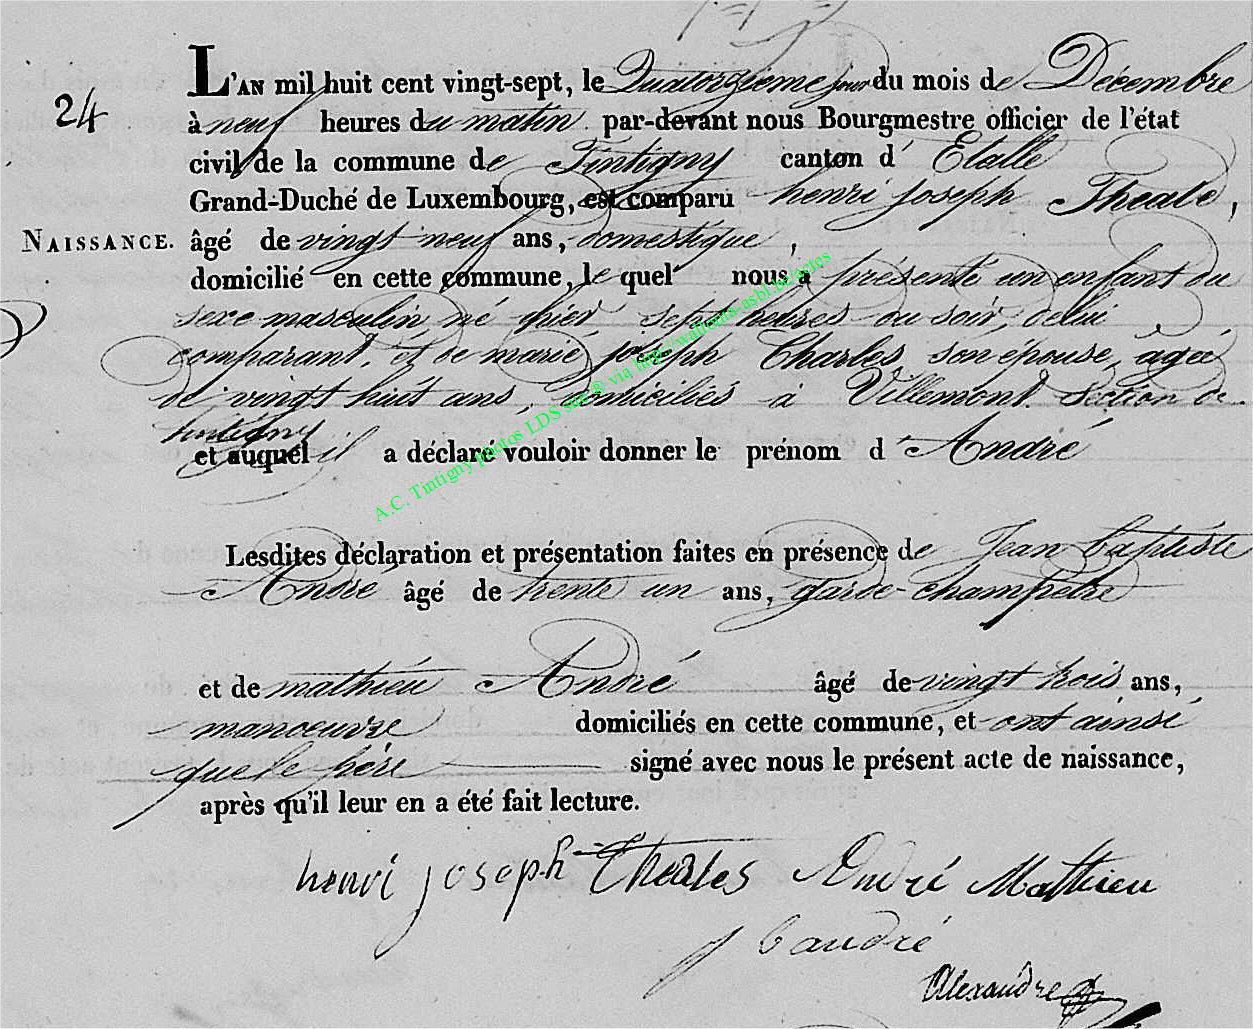 24
L'AN mil huit cent vingt-sept, le Quatorzieme jour du mois de Décembre
à neuf heures du matin par-devant nous Bourgmestre officier de l'état
civil de la commune de Tintigny canton d' Etalle
Grand-Duché de Luxembourg, est comparu henri joseph Theale,
NAISSANCE. âgé de vingt neuf ans, domestique,
domicilié en cette commune, le quel nous a présenté un enfant du
sexe masculin né hier sept heures du soir, de lui
comparant, et de marie joseph Charles son épouse, agée
de vingt huit ans, domiciliés à Villemont section de
tintigny
et auquel il a déclaré vouloir donner le prénom d' André
Lesdites déclaration et présentation faites en présence de Jean baptiste
André âgé de trente un ans, garde-champêtre
et de mathieu André âgé de vingt trois ans,
manoeuvre domiciliés en cette commune, et ont ainsi
que le père signé avec nous le présent acte de naissance,
après qu'il leur en a été fait lecture.
henri joseph Theales André Mathieu
j b andré
Alexandre
A.C. Tintigny photos LDS sur ® via http://wallonia-asbl.be/actes